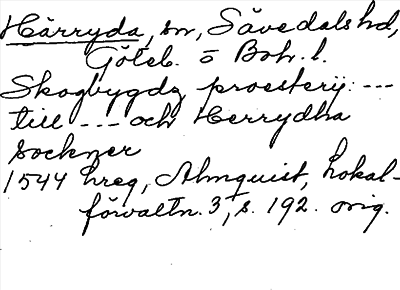 Härryda, sn, Sävedals hd,
Göteb. o Boh. l.
Skogbygdz proesterij: ---
till --- och Herrydha
sockner
1544 hreg, Almquist, Lokal-
förvaltn. 3, s. 192. orig.